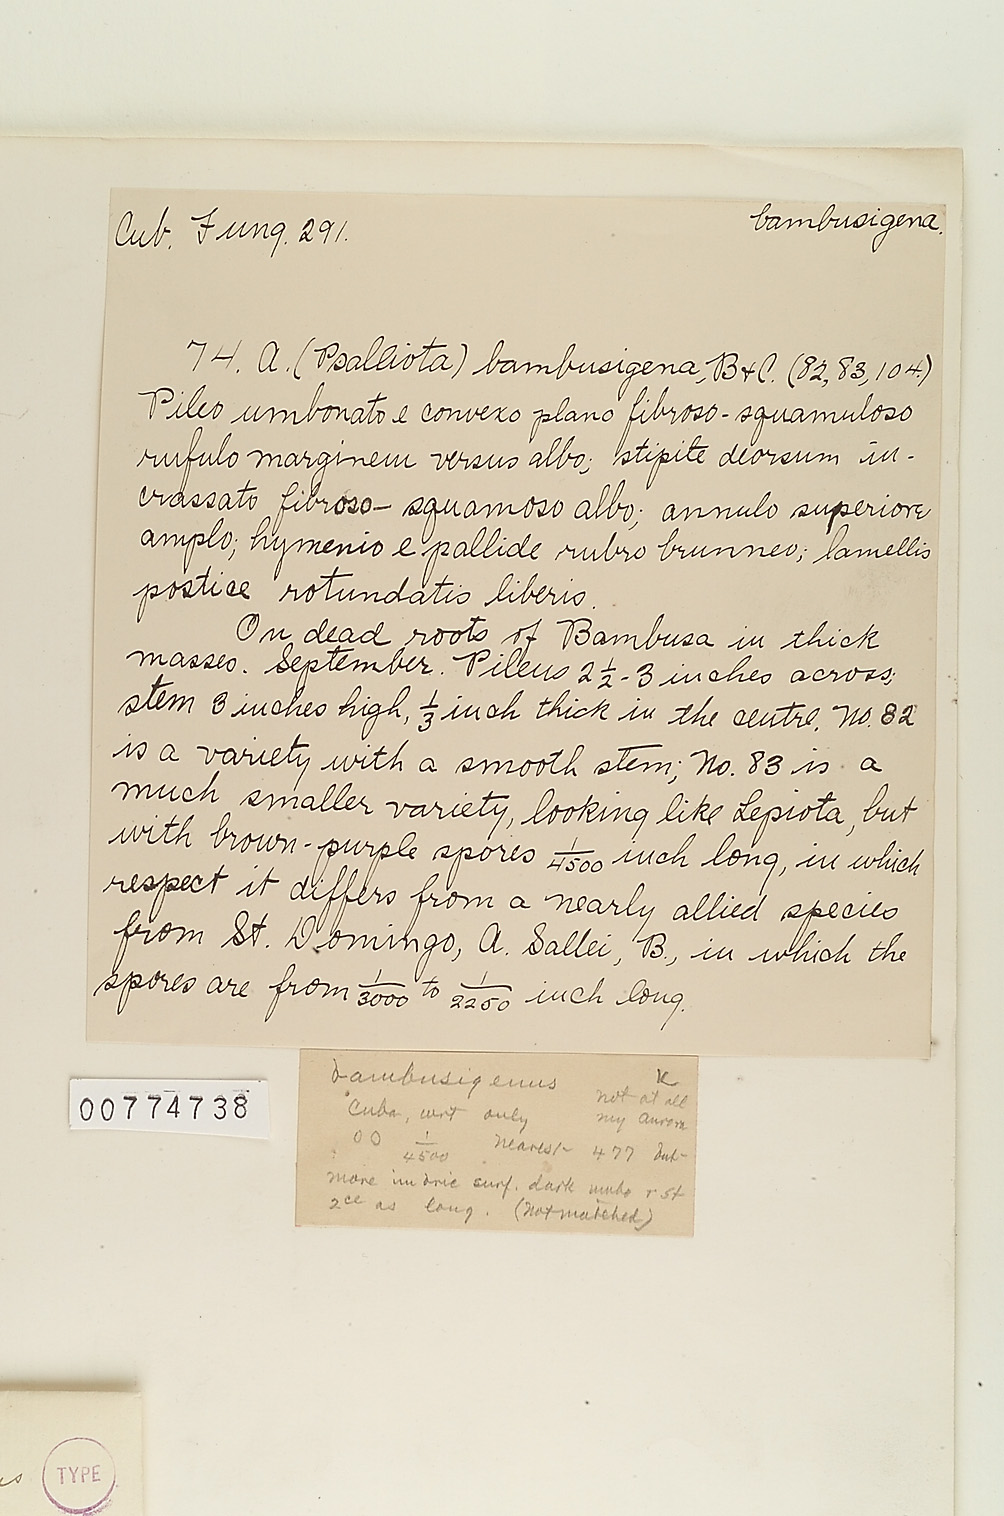 Cub. Fung. 291.
bambusigena.
74. A. (Psalliota) bambusigena, B & C. (82, 83, 104.)
Pileo umbonato e convexo plano fibroso-squamuloso
rufulo marginem versus albo; stipite deorsum in-
crassato fibroso-squamoso albo; annulo superiore
amplo; hymenio e pallide rubro brunneo; lamellis
postice rotundatis liberis.
On dead roots of Bambusa in thick
masses. September. Pileus 2 1/2 - 3 inches across;
stem 3 inches high, 1/3 inch thick in the centre. No. 82
is a variety with a smooth stem; No. 83 is a
much smaller variety, looking like Lepiota, but
with brown-purple spores 1/4500 inch long, in which
respect it differs from a nearly allied species
from St. Domingo, A. Sallei, B., in which the
spores are from 1/3000 to 1/2250 inch long.
bambusigenus K
Cuba, wrt only not at all
my
00 1/4500 nearest 477 but
more surf. dark umbo r st
2ce as long. (not matched)
00774738
TYPE